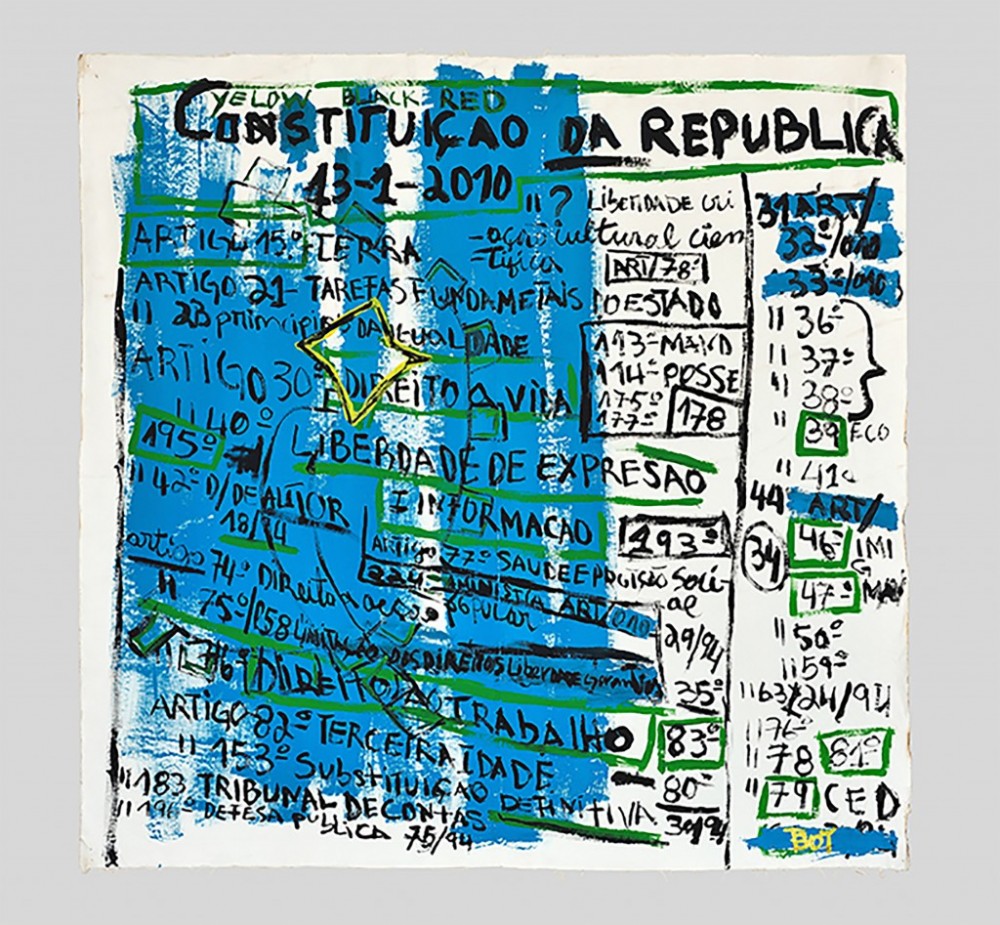 YELOW BLACK RED
CONSTITUIÇAO DA REPUBLICA
13-1-2010
" ? LIBERDADE cri
ARTIGO 15º TERRA
-ação cultural cien
tifica
ART/78º
ARTIGO 21- TAREFAS FUNDAMETAIS
DESTADO
" 23 principio DA IGUALDADE
ARTIGO 30º DIREITO A VIDA
113-MAND
114-POSSE
175º
177º 178
" 40º
LIBERDADE DE EXPRESAO
195º
I INFORMACAO
" 42º D/DE AUTOR
18/94
193º
ARTIGO 77º SAUDE E PROTISÃO Soci-
al
artigo 74º Direito a ação popular
224- AMNISTIA ART/010-
29/94
" 75º/58 LIMITAÇÃO DOS DIREITOS LIBERDADE garantias
35º
76º DIREITO AO TRABALHO
83º
ARTIGO 82º TERCEIRA IDADE
80º
" 153º SUBSTITUIÇÃO
DEFINITIVA
30/94
" 183 TRIBUNAL DE CONTAS
" 196º DEFESA PUBLICA 75/94
31 ART/
32º/010
33º/010
" 36º
" 37º
" 38º
" 39 ECO
" 41º
44 ART/
34 46º IMI
G
47º
" 50º
" 59º
" 63/24/94
" 76º
" 78 81º
" 79 CED
BOT